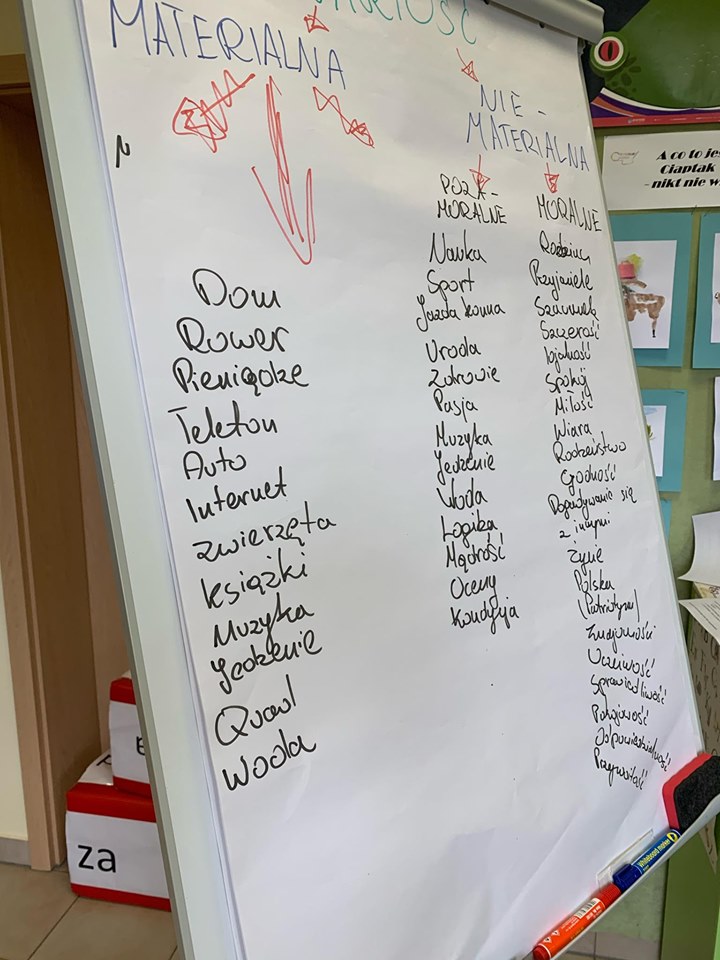 WARTOŚĆ
MATERIALNA
NIE -
MATERIALNA
Dom
Rower
Pieniądze
Telefon
Auto
Internet
zwierzęta
książki
Muzyka
Jedzenie
Quad
Woda
POZA -
MORALNE
Nauka
Sport
Jazda konna
Uroda
Zdrowie
Pasja
Muzyka
Jedzenie
Woda
Logika
Mądrość
Oceny
Kondycja
MORALNE
Rodzina
Przyjaciele
Szacunek
Szczerość
lojalność
Spokój
Miłość
Wiara
Rodzeństwo
Godność
Dogadywanie się
z innymi
Życie
Polska
(Patriotyzm)
Znajomości
Uczciwość
Sprawiedliwość
Pobożność
Odpowiedzialność
Przyzwoitość
A co to jes
Ciaptak
- nikt nie w
za
Whiteboard marker